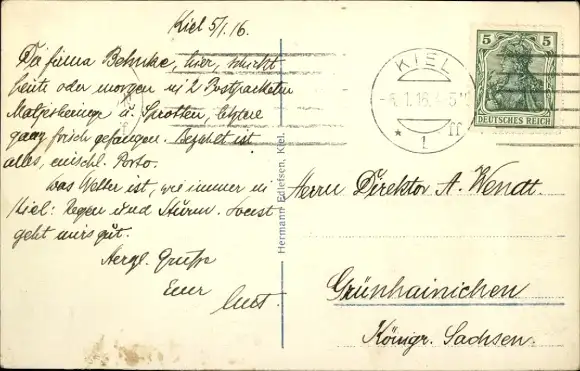 Kiel 5/1. 16.
Da firma Behnke, hier, schickt
heute oder morgen in 2 Postpacketen
Matjesheringe u. Sprotten, letztere
ganz frisch gefangen. Bezahlt ist
alles, einschl. Porto.
Das Wetter ist, wie immer in
Kiel: Regen und Sturm. Sonst
geht mirs gut.
Herzl. Grüsse
Euer
Hermann Edlefsen, Kiel.
KIEL
1
5 5
DEUTSCHES REICH
Herrn Direktor A. Wendt.
Grünhainichen
Königr. Sachsen.